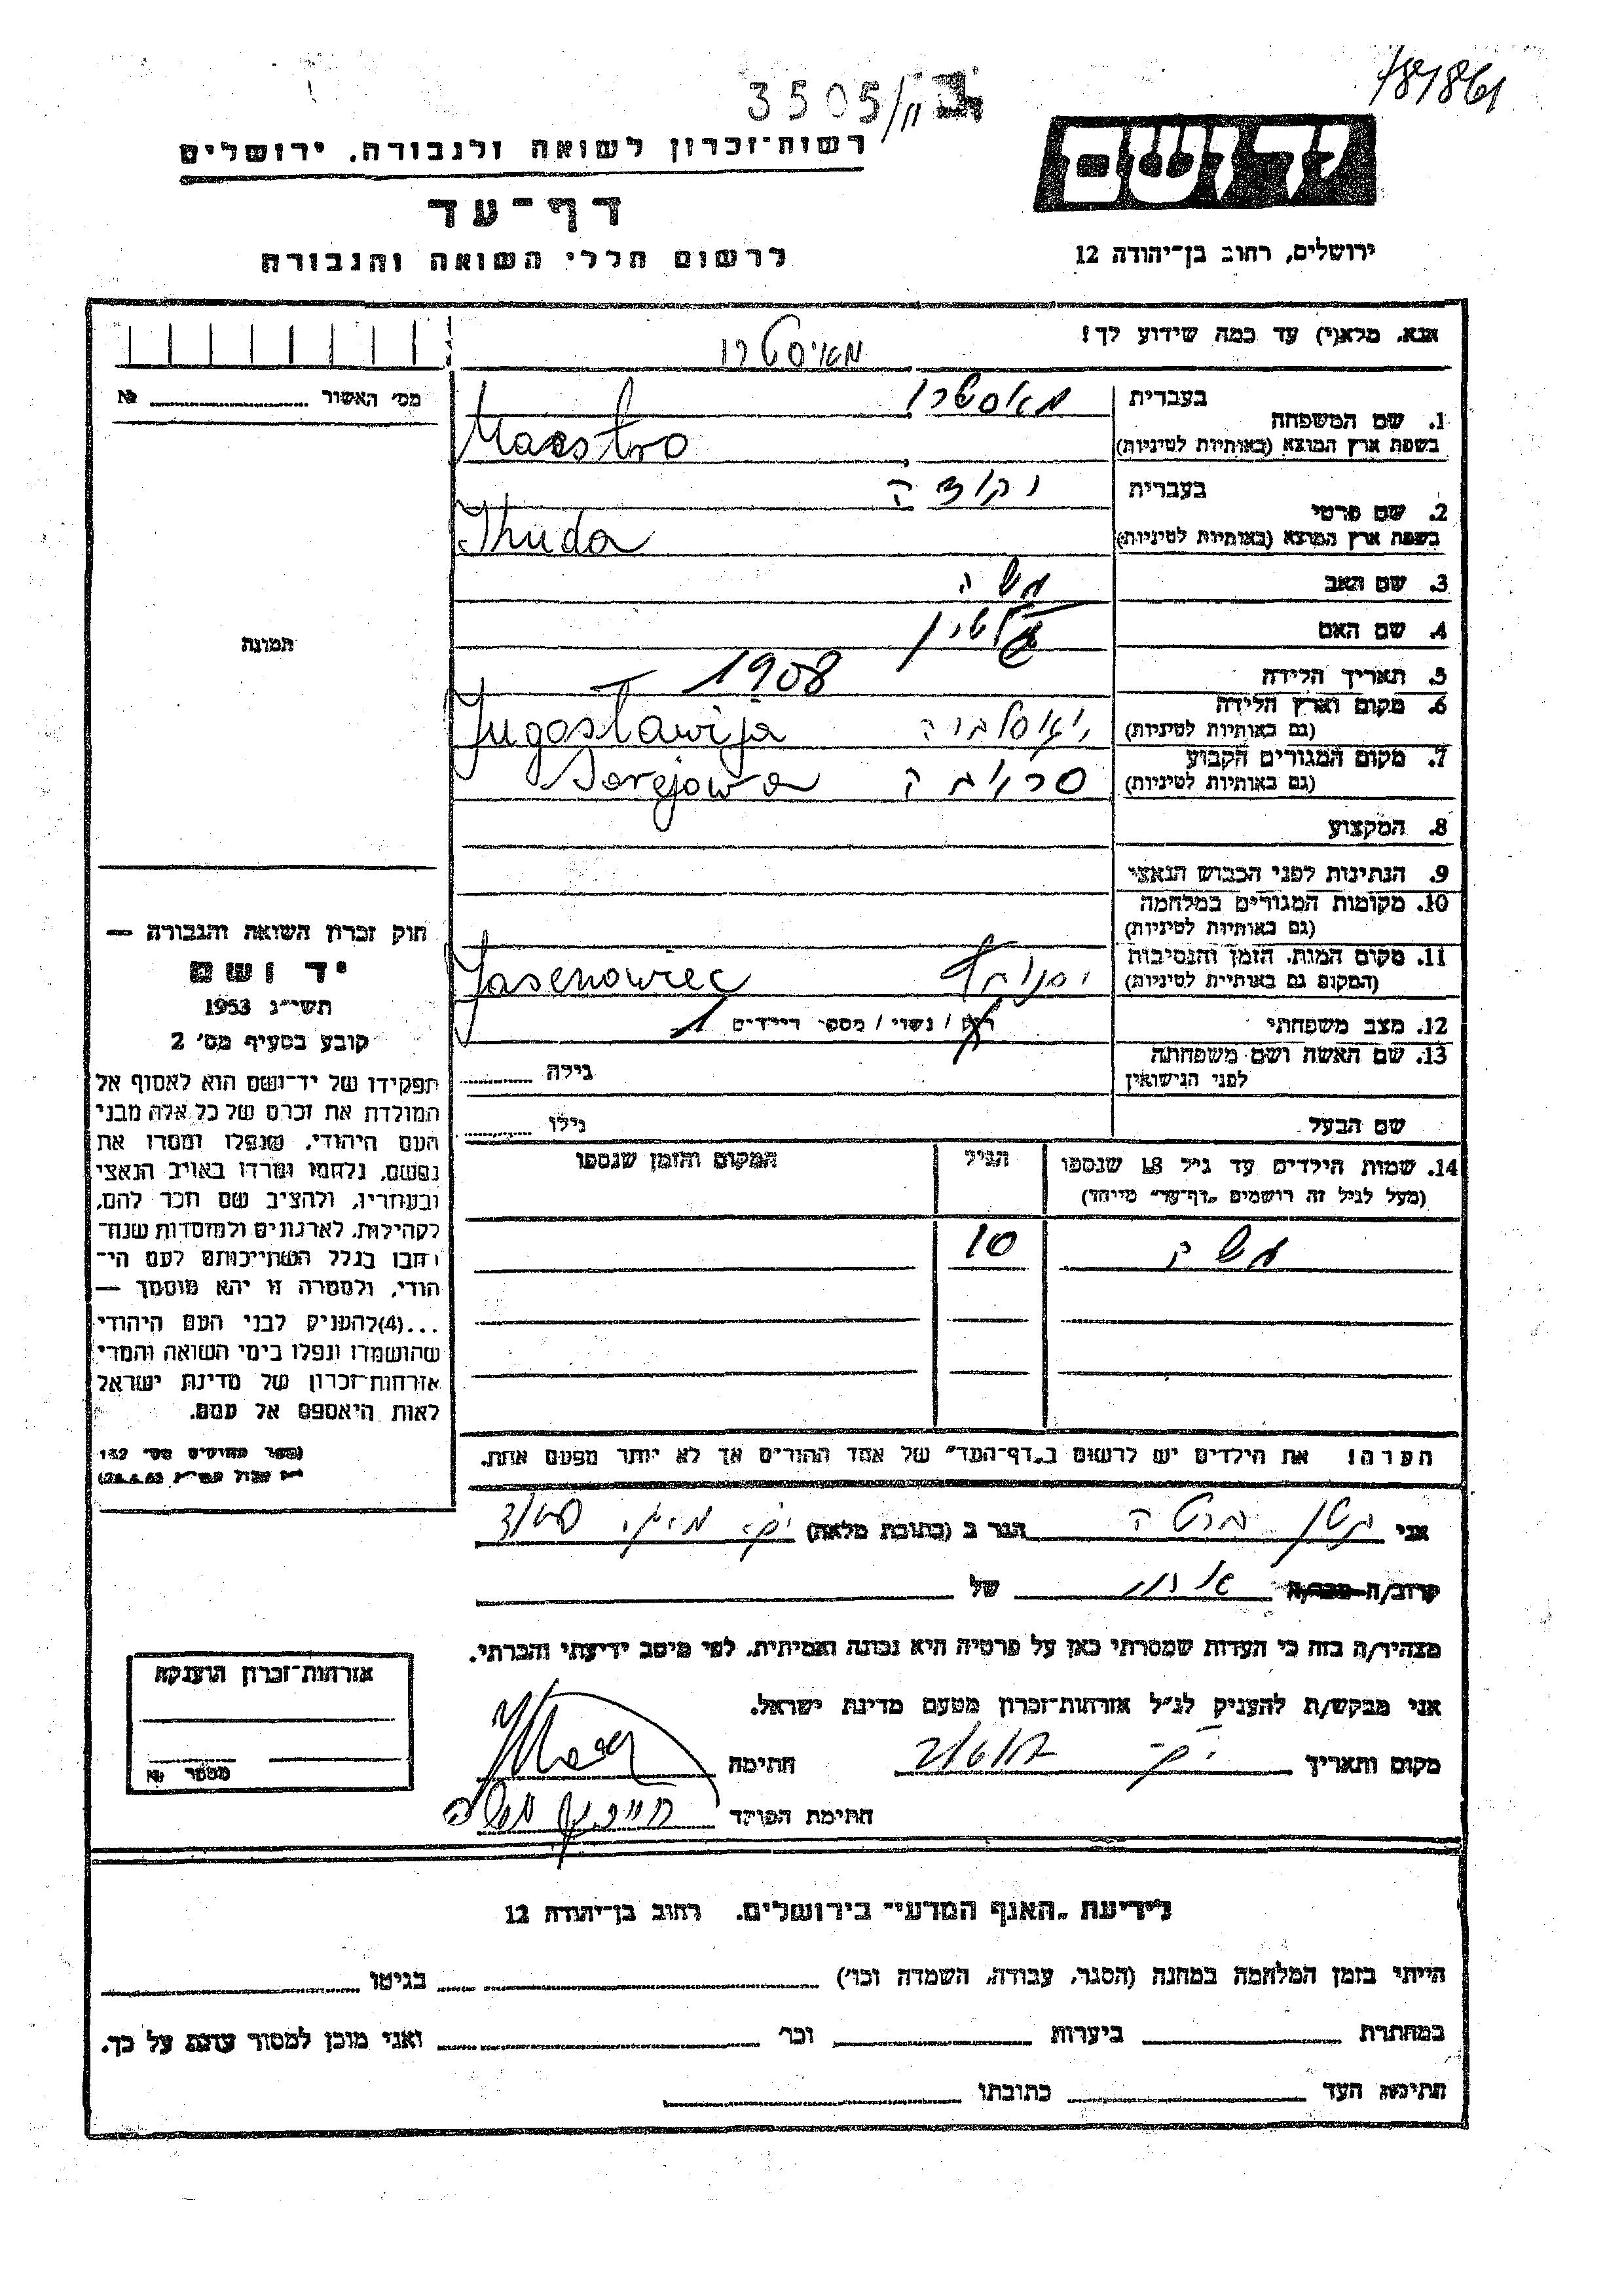 3505/ח
781861
רשות־זכרון לשואה ולגבורה, ירושלים
יד ושם
דף־עד
לרשום חללי השואה והגבורה
ירושלים, רחוב בן־יהודה 12
אנא, מלא(י) עד כמה שידוע לך!
מאיסטרו
מס׳ האשור № ........
1. שם המשפחה
בעברית מאסטרו
בשפת ארץ המוצא (באותיות לטיניות) Maestro
2. שם פרטי
בעברית
בשפת ארץ המוצא (באותיות לטיניות) Ihuda
3. שם האב משה
4. שם האם
5. תאריך הלידה 1908
6. מקום וארץ הלידה
(גם באותיות לטיניות) Jugoslawija
7. מקום המגורים הקבוע
(גם באותיות לטיניות) Sarejowo
8. המקצוע
9. הנתינות לפני הכבוש הנאצי
10. מקומות המגורים במלחמה
(גם באותיות לטיניות)
11. מקום המות, הזמן והנסיבות
(המקום גם באותיות לטיניות) Jasenowiec
12. מצב משפחתי
רווק / נשוי / מספר הילדים 1
13. שם האשה ושם משפחתה
לפני הנישואין
גילה ........
שם הבעל
גילו ........
14. שמות הילדים עד גיל 18 שנספו
(מעל לגיל זה רושמים „דף־עד” מייחד)
הגיל
המקום והזמן שנספו
10
הערה! את הילדים יש לרשום ב„דף־העד” של אחד ההורים אך לא יותר מפעם אחת.
תמונה
חוק זכרון השואה והגבורה —
יד ושם
תשי״ג 1953
קובע בסעיף מס׳ 2
תפקידו של יד־ושם הוא לאסוף אל
המולדת את זכרם של כל אלה מבני
העם היהודי, שנפלו ומסרו את
נפשם, נלחמו ומרדו באויב הנאצי
ובעוזריו, ולהציב שם וזכר להם,
לקהילות, לארגונים ולמוסדות שנח־
רבו בגלל השתייכותם לעם הי־
הודי, ולמטרה זו יהא מוסמך —
...(4)להעניק לבני העם היהודי
שהושמדו ונפלו בימי השואה והמרי
אזרחות־זכרון של מדינת ישראל
לאות היאספם אל עמם.
(ספר החוקים מס׳ 132
אני
הגר ב (כתובת מלאה)
קרוב/ה מכר/ה
של
מצהיר/ה בזה כי העדות שמסרתי כאן על פרטיה היא נכונה ואמיתית, לפי מיטב ידיעתי והכרתי.
אני מבקש/ת להעניק לנ״ל אזרחות־זכרון מטעם מדינת ישראל.
מקום ותאריך
חתימה
חתימת הפוקד
אזרחות־זכרון הוענקה
מספר №
לידיעת „האגף המדעי” בירושלים, רחוב בן־יהודה 12
הייתי בזמן המלחמה במחנה (הסגר, עבודה, השמדה וכו׳) ........ בגיטו ........
במחתרת ........ ביערות ........ וכו׳ ........ ואני מוכן למסור עדות על כך.
חתימת העד ........ כתובתו ........